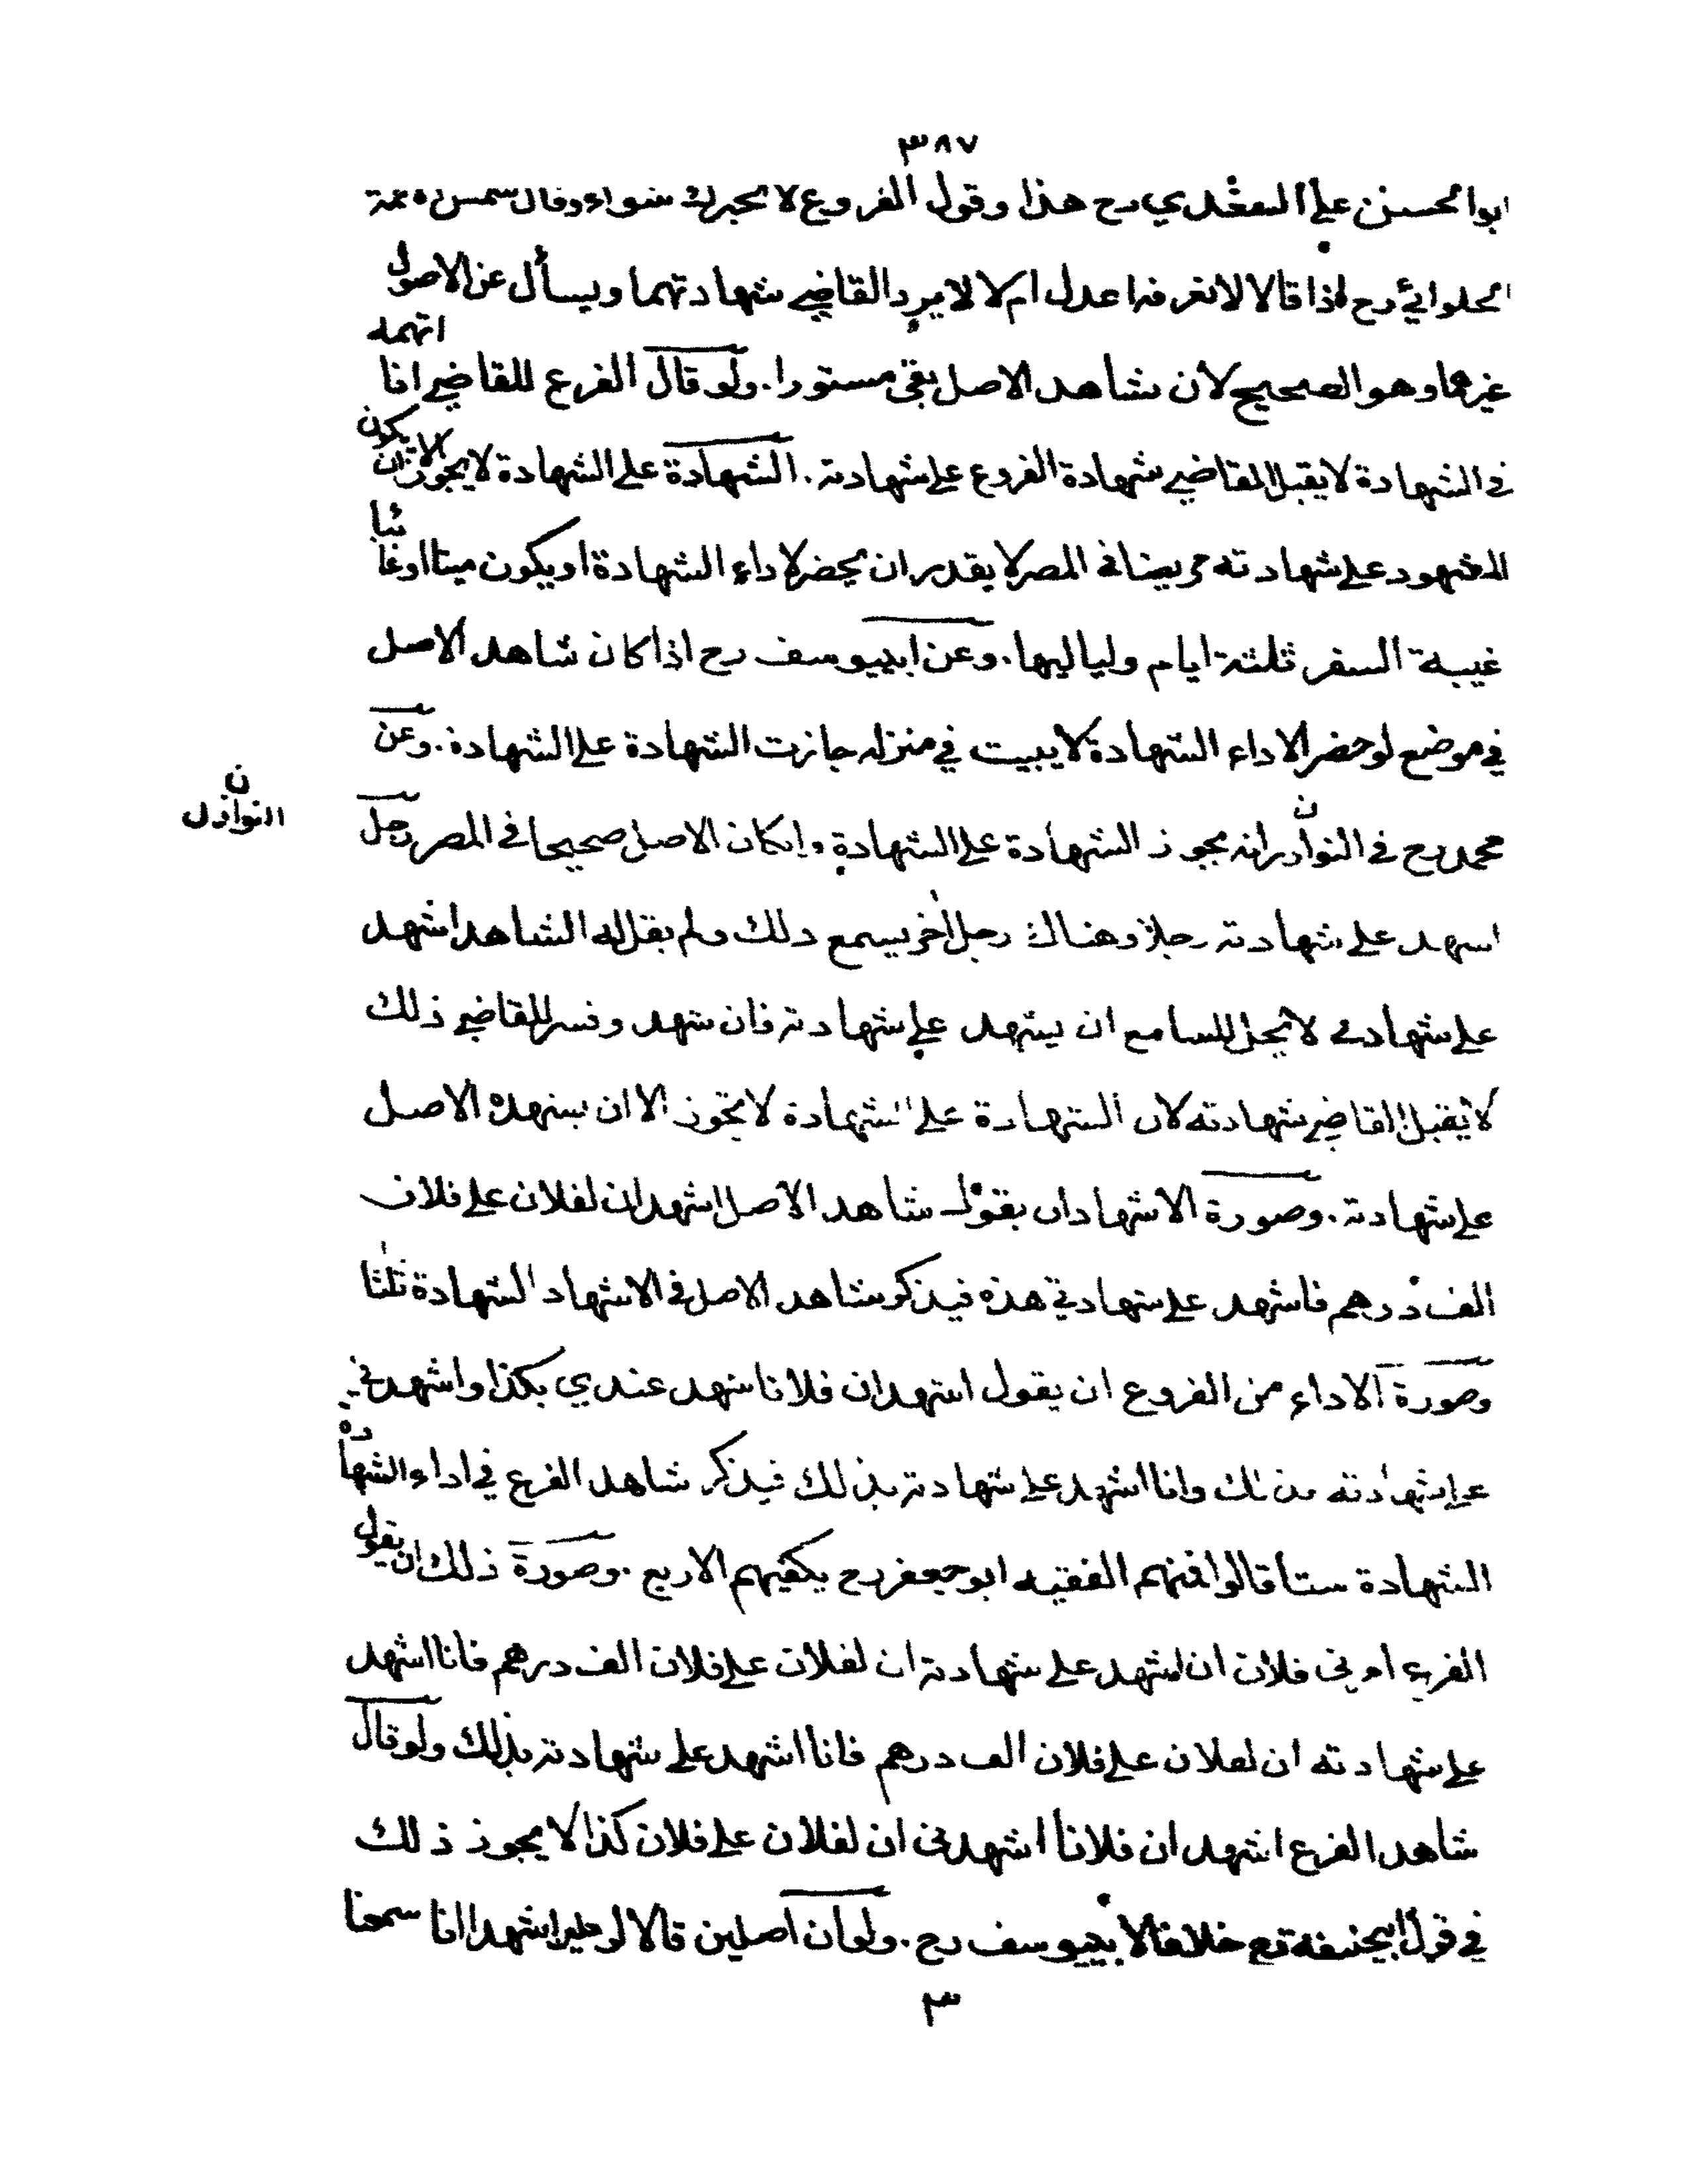 ٣٨٧
ابوالحسن علي السغدي رح هذا وقول الفروع لا نخبرك سواء وقال شمس الائمة
الحلوائي رح اذا قالا لا نعرفه اعدل ام لا لا يرد القاضي شهادتهما ويسأل عن الاصول
غيرهما وهو الصحيح لان شاهد الاصل بقي مستورا. ولو قال الفرع للقاضي انا اتهمه
في الشهادة لا يقبل القاضي شهادة الفروع علي شهادته. الشهادة علي الشهادة لا يجوز الا ان يكون
المشهود علي شهادته مريضا في المصر لا يقدر ان يحضر لاداء الشهادة او يكون ميتا او غائبا
غيبة السفر ثلثة ايام ولياليها. وعن ابييوسف رح اذا كان شاهد الاصل
في موضع لو حضر لاداء الشهادة لا يبيت في منزله جازت الشهادة علي الشهادة. وعن
محمد رح في النوادر انه يجوز الشهادة علي الشهادة وانكان الاصل صحيحا في المصر رجل
ن
النوازل
اشهد علي شهادته رجلا وهناك رجل اخر يسمع ذلك ولم يقل له الشاهد اشهد
علي شهادتي لا يحل للسامع ان يشهد علي شهادته فان شهد وفسر للقاضي ذلك
لا يقبل القاضي شهادته لان الشهادة علي الشهادة لا يجوز الا ان يشهده الاصل
علي شهادته. وصورة الاشهاد ان يقول شاهد الاصل اشهد ان لفلان علي فلان
الف درهم فاشهد علي شهادتي هذه فيذكر شاهد الاصل في الاشهاد الشهادة ثلثا
وصورة الاداء من الفروع ان يقول اشهد ان فلانا شهد عندي بكذا واشهدني
علي شهادته بذلك وانا اشهد علي شهادته بذلك فيذكر شاهد الفرع في اداء الشهادة
الشهادة ستا قالوا فمنهم الفقيه ابو جعفر رح يكفيهم الاربع. وصورة ذلك ان يقول
الفرع امرني فلان ان اشهد علي شهادته ان لفلان علي فلان الف درهم فانا اشهد
علي شهادته ان لفلان علي فلان الف درهم فانا اشهد علي شهادته بذلك ولو قال
شاهد الفرع اشهد ان فلانا اشهدني ان لفلان علي فلان كذا لا يجوز ذلك
في قول ابيحنيفة رح خلافا لابييوسف رح. ولو ان اصلين قالا لرجلين اشهدا انا سمعنا
٣